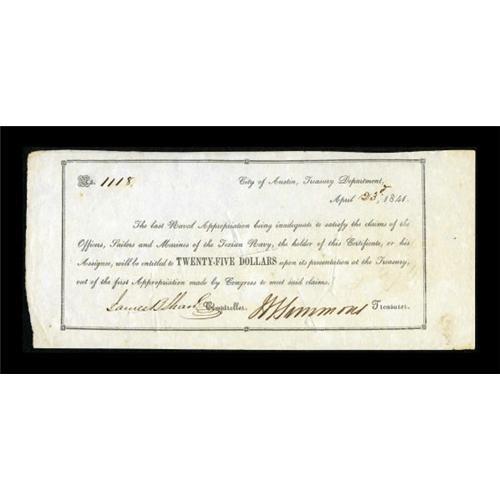 No. 1118,
City of Austin, Treasury Department,
April 23d, 1841.
The last Naval Appropriation being inadequate to satisfy the claims of the
Officers, Sailors and Marines of the Texian Navy, the holder of this Certificate, or his
Assignee, will be entitled to TWENTY-FIVE DOLLARS upon its presentation at the Treasury,
out of the first Appropriation made by Congress to meet said claims.
James B Shaw Comptroller. Simmons Treasurer.